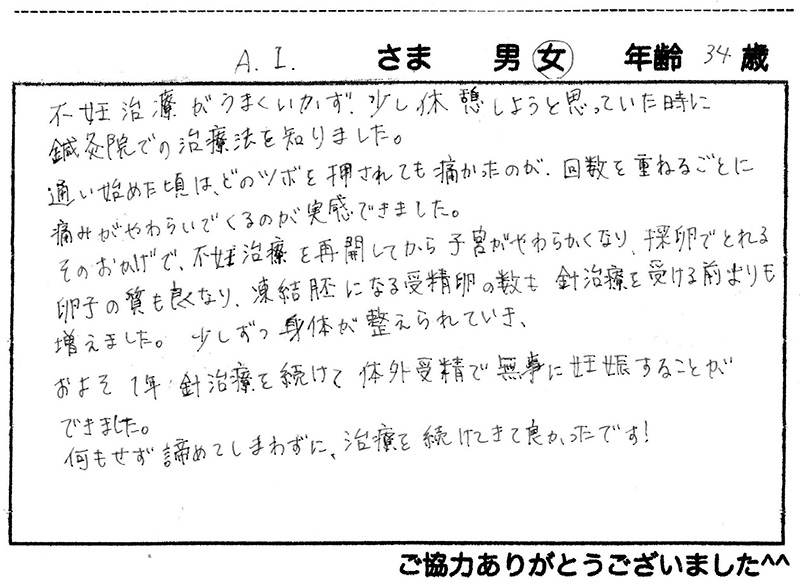 A. I. さま 男 女 年齢 34 歳
不妊治療がうまくいかず、少し休憩しようと思っていた時に
鍼灸院での治療法を知りました。
通い始めた頃は、どのツボを押されても痛かったのが、回数を重ねるごとに
痛みがやわらいでくるのが実感できました。
そのおかげで、不妊治療を再開してから子宮がやわらかくなり、採卵でとれる
卵子の質も良くなり、凍結胚になる受精卵の数も針治療を受ける前よりも
増えました。少しずつ身体が整えられていき、
およそ1年針治療を続けて体外受精で無事に妊娠することが
できました。
何もせず諦めてしまわずに、治療を続けてきて良かったです!
ご協力ありがとうございました^^